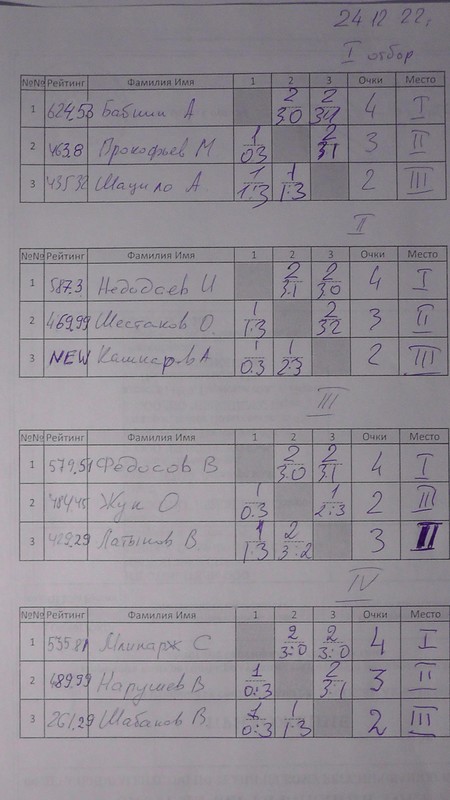 24 12 22г
I отбор
№№ Рейтинг Фамилия Имя 1 2 3 Очки Место
1 624,53 Бабкин А 2 3:0 2 3:1 4 I
2 463,8 Прокофьев М 1 0:3 2 3:1 3 II
3 435,32 Шацило А. 1 1:3 1 1:3 2 III
II
№№ Рейтинг Фамилия Имя 1 2 3 Очки Место
1 587,3 И 2 3:1 2 3:0 4 I
2 469,99 Шестаков О. 1 1:3 2 3:2 3 II
3 NEW Кашкаров А 1 0:3 1 2:3 2 III
III
№№ Рейтинг Фамилия Имя 1 2 3 Очки Место
1 579,51 Федосов В 2 3:0 2 3:1 4 I
2 Жук О 1 0:3 1 2:3 2 III
3 429,29 Латыпов В. 1 1:3 2 3:2 3 II
IV
№№ Рейтинг Фамилия Имя 1 2 3 Очки Место
1 535,81 Млинарж С 2 3:0 2 3:0 4 I
2 489,99 Нарушев В 1 0:3 2 3:1 3 II
3 261,29 Шабанов В. 1 0:3 1 1:3 2 III